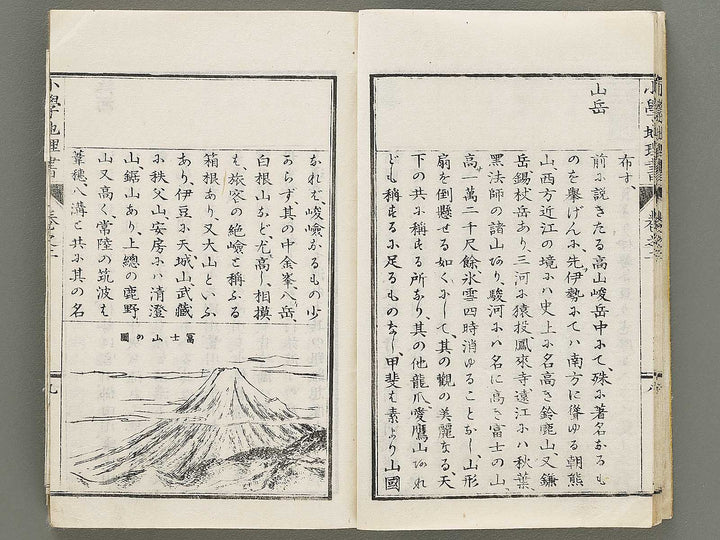 布す、
山岳
前に説きたる高山峻岳中にて、殊に著名なるも
のを擧げんに、先伊勢にてハ南方に聳ゆる朝熊
山、西方近江の境にハ史上に名高き鈴鹿山、又鎌
岳、錫杖岳あり、三河に猿投、鳳來寺、遠江にハ秋葉、
黑法師の諸山あり、駿河にハ名に高き富士の山、
高一萬二千尺餘、氷雪四時消ゆることなし、山形
扇を倒懸せる如くにして、其の觀の美麗なる、天
下の共に稱する所なり、其の他龍爪、愛鷹山あれ
ども稱するに足るものなし、甲斐も素より山國
なれば、峻嶮なるもの少
からず、其の中金峯、八岳、
白根山など、尤高し、相摸
も、旅客の絶嶮と稱ふる
箱根あり、又大山といふ
あり、伊豆に天城山、武藏
に秩父山、安房にハ清澄
山、鋸山あり、上總の鹿野
山又高く、常陸の筑波も
葦穗、八溝と共に其の名
冨士山の圖
小學地理書
卷之二
九